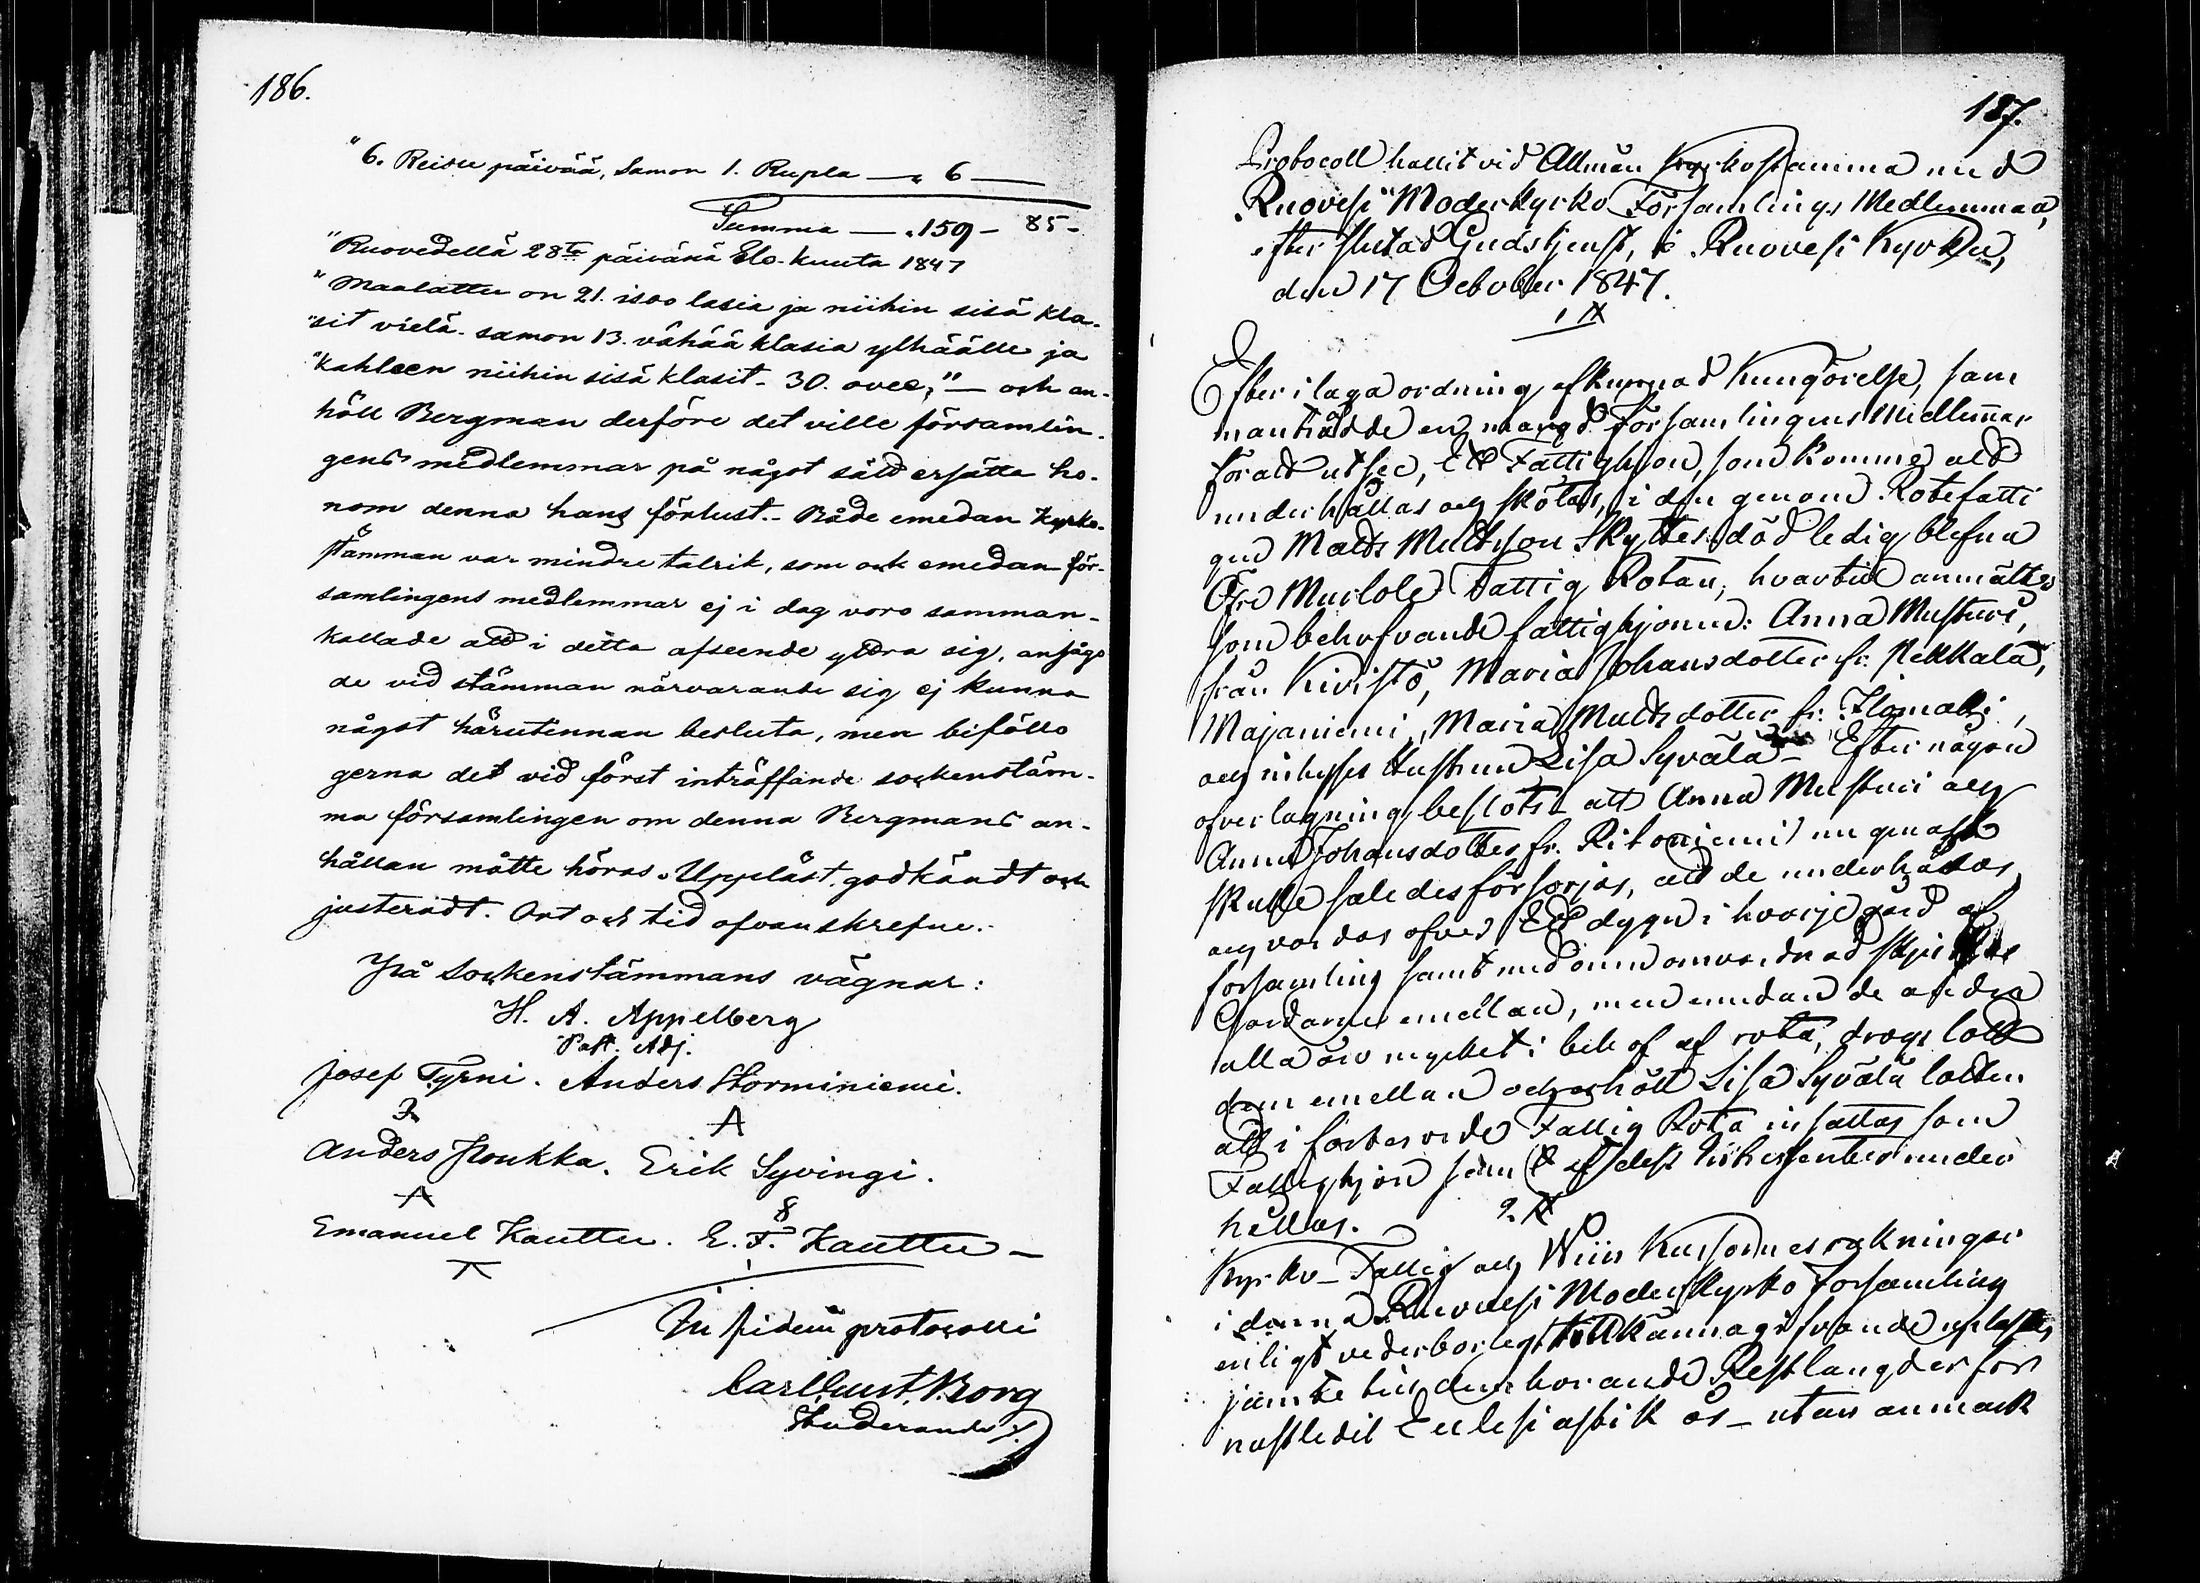 186.
"6. Reisu päivää, Samon 1. Rupla — " 6 —
Summa — " 159 - 85 -
"Ruovedellä 28te päivänä Elo-kuuta 1847
"Maalattu on 21. isoo lasia ja niihin sisä kla-
"sit vielä - samon 13. vähää klasia ylhäälle ja
"kahleen niihin sisä klasit - 30. ovee," — och an-
höll Bergman derföre det ville församlin-
gens medlemmar på något sätt ersätta ho-
nom denna hans förlust. - Både emedan Kyrko-
stämman var mindre talrik, som ock emedan för-
samlingens medlemmar ej i dag voro samman-
kallade att i detta afseende yttra sig, ansågo
de vid stämman närvarande sig ej kunna
något härutinnan besluta, men biföllo
gerna det vid först inträffande sockenstäm-
ma församlingen om denna Bergmans an-
hållan måtte höras. Uppläst, godkändt och
justeradt. Ort och tid ofvanskrefne.
På Sockenstämmans vägnar:
H. A. Appelberg
Past. Adj.
Josef Tyrni. Anders Storminiemi.
Anders Houkka. Erik Syvingi.
Emanuel Kauttu. E. F. Kauttu —
In fidem protocolli
Carl Gust. Borg
Studerande
187.
Protocoll hållit vid Allmän Kyrkostämma med
Ruovesi Moderkyrko Församlings Medlemmar,
efter slutad Gudstjenst, i Ruovesi Kyrka,
den 17 October 1847.
1 §
Efter i laga ordning afkunnad Kungörelse, sam
manträdde en mängd Församlingens Medlemmar
för att utse, Ett Fattighjon, som komme att
underhållas och skötas, i den genom Rotefatti
gen Matts Mattsson Skyttes död ledig blefna
Öfre Murlole Fattig Rotan, hvartill anmältes
som behofvande fattighjonen: Anna Musturi,
från Kivistö, Maria Johansdotter fr. Pekkala,
Majaniemi, Maria Mattsdotter fr. Ilomäki,
och inhyses Hustrun Lisa Syvälä - Efter någon
öfverlägning beslöts att Anna Musturi och
Anna Johansdotter fr. Ritoniemi nu genast
skulle således försörjas, att de underhållas
och vårdas öfver Ett dygn i hvarje gård af
församling samt med omvårdnad skjutsas
Gårdarne emellan, men emedan de andra
alla äro mycket i behof af rota, drogs lott
dem emellan och erhöll Lisa Syvälä lotten
att i förberörde Fattig Rota insättas som
Fattighjon samt af dess under
hållas.
2. §
Kyrko- Fattig och Wiin Kassornes räkningar
i denna Ruovesi Moderkyrko Församling
enligt vederbörligt tillkännagifvande upplästes
jämte till dem hörande Restlängder för
nästledit Ecclesiastik år - utan anmärk